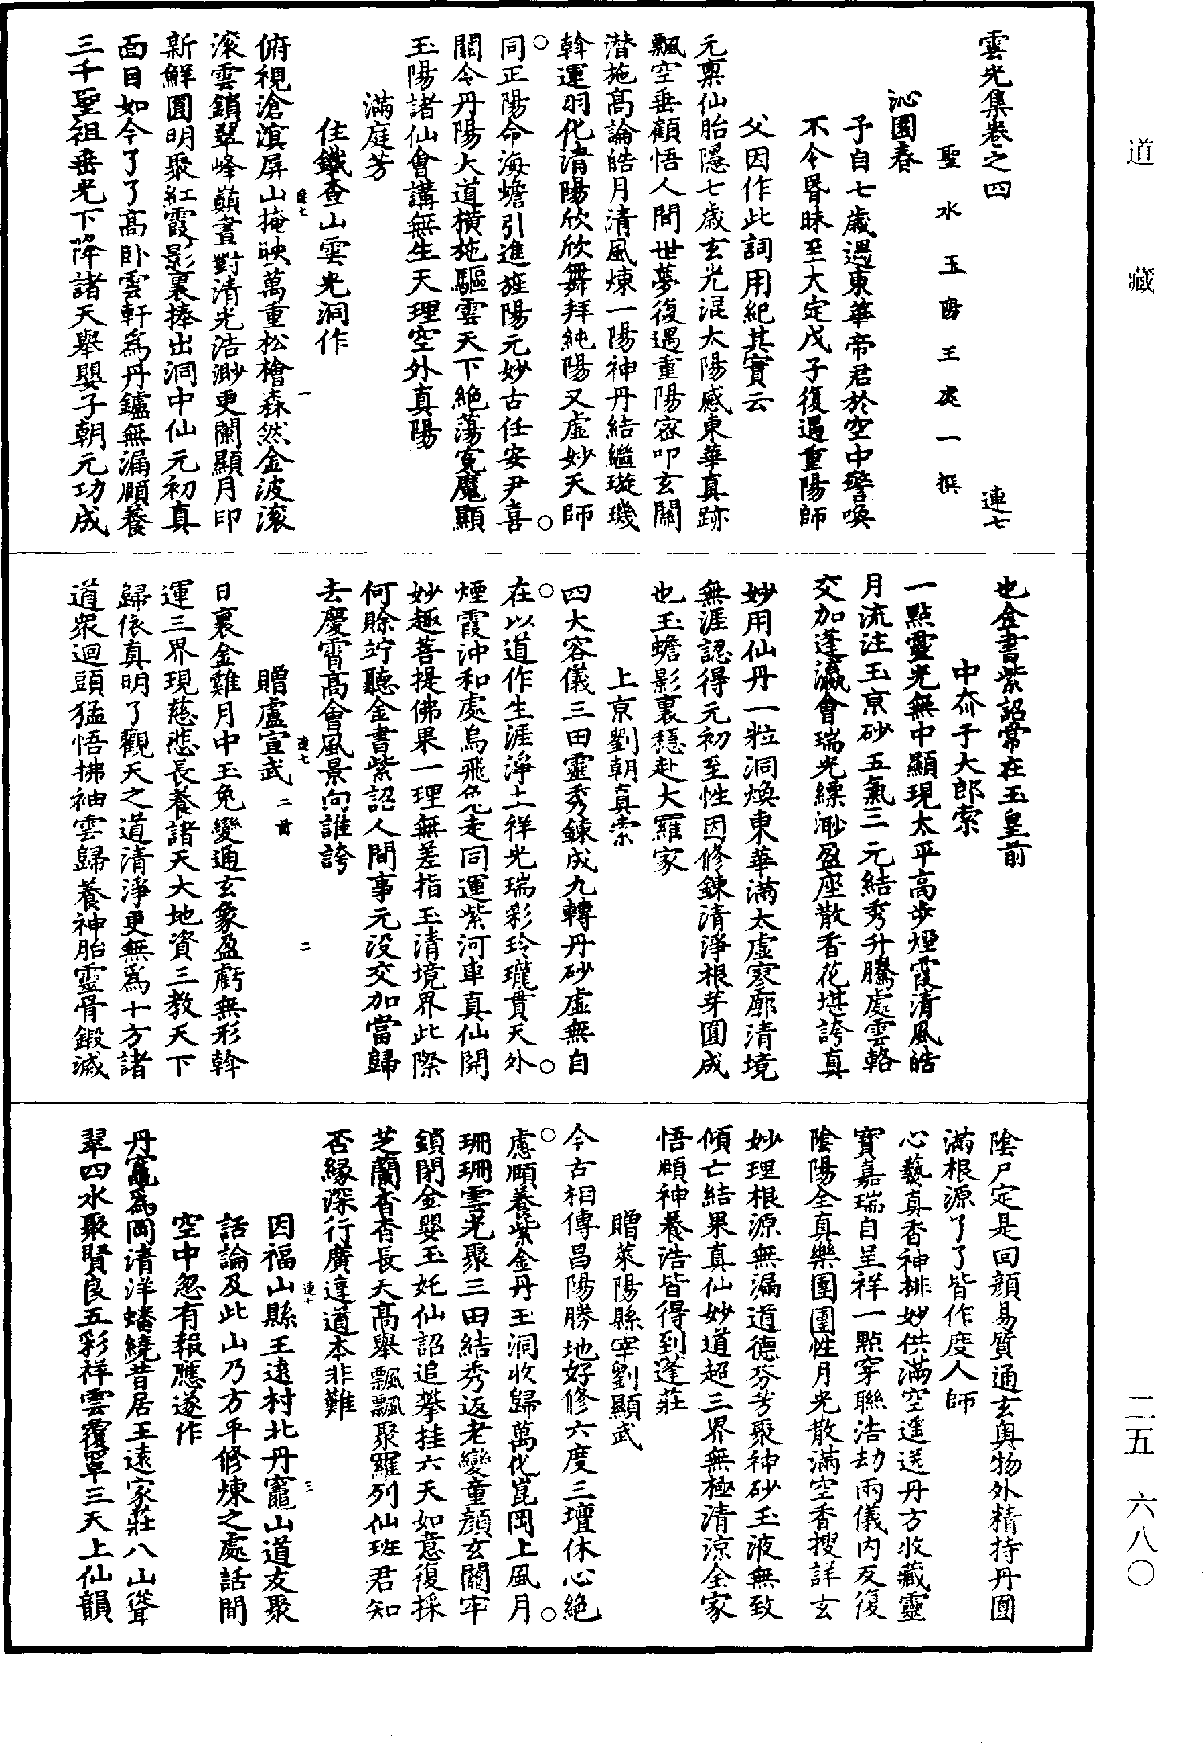 道藏
二五 六八〇
雲光集卷之四
連七
聖水玉陽王處一撰
沁園春
予自七歲遇東華帝君於空中警喚
不令昏昧至大定戊子復遇重陽師
父因作此詞用紀其實云
元稟仙胎隱七歲玄光混太陽感東華真跡
飄空垂顧悟人間世夢復遇重陽密叩玄關
潛施高論皓月清風煉一陽神丹結繼璇璣
斡運羽化清陽欣欣舞拜純陽又虛妙天師
○ ○
同正陽命海蟾引進旌陽元妙古任安尹喜
關令丹陽大道橫施驅雲天下絕蕩冤魔顯
玉陽諸仙會講無生天理空外真陽
滿庭芳
住鐵查山雲光洞作
俯視滄溟屏山掩映萬重松檜森然金波滾
連七 一
滾雲鎖翠峰巔晝對清光浩渺更闌顯月印
新鮮圓明聚紅霞影裏捧出洞中仙元初真
面目如今了了高臥雲軒為丹鑪無漏頤養
三千聖祖垂光下降諸天舉嬰子朝元功成
也金書紫詔常在玉皇前
中奈子大郎索
一點靈光無中顯現太平高步煙霞清風皓
月流注玉京砂五氣三元結秀升騰處雲輅
交加蓬瀛會瑞光縹渺盈座散香花堪誇真
妙用仙丹一粒洞煥東華滿太虛寥廓清境
無涯認得元初至性因修鍊清淨根芽圓成
也玉蟾影裏穩赴大羅家
上京劉朝真索
四大容儀三田靈秀鍊成九轉丹砂虛無自
○ ○
在以道作生涯淨土祥光瑞彩玲瓏貫天外
煙霞沖和處烏飛兔走同運紫河車真仙開
妙趣菩提佛果一理無差指玉清境界此際
何賒竚聽金書紫詔人間事元沒交加當歸
去慶霄高會風景向誰誇
贈盧宣武二首
連七 二
日裏金雞月中玉兔變通玄象盈虧無形斡
運三界現慈悲長養諸天大地資三教天下
歸依真明了觀天之道清淨更無為十方諸
道眾迴頭猛悟拂袖雲歸養神胎靈骨鍛滅
陰尸定是回顏易質通玄奧物外精持丹圓
滿根源了了皆作度人師
心藝真香神排妙供滿空遙送丹方收藏靈
寶嘉瑞自呈祥一點穿聯浩劫兩儀內反復
陰陽全真樂團團性月光散滿空香搜詳玄
妙理根源無漏道德芬芳聚神砂玉液無致
傾亡結果真仙妙道超三界無極清涼全家
悟頤神養浩皆得到蓬莊
贈萊陽縣宰劉顯武
今古相傳昌陽勝地好修六度三壇休心絕
○ ○
慮頤養紫金丹玉洞收歸萬化崑岡上風月
珊珊雲光聚三田結秀返老變童顏玄關牢
鎖閉金嬰玉奼仙詔追攀挂六天如意復採
芝蘭杳杳長天高舉飄飄聚羅列仙班君知
否緣深行廣達道本非難
連十 三
因福山縣王遠村北丹竈山道友聚
話論及此山乃方平修煉之處話間
空中忽有報應遂作
丹竈為岡清洋蟠繞昔居王遠家莊八山聳
翠四水聚賢良五彩祥雲覆罩三天上仙韻